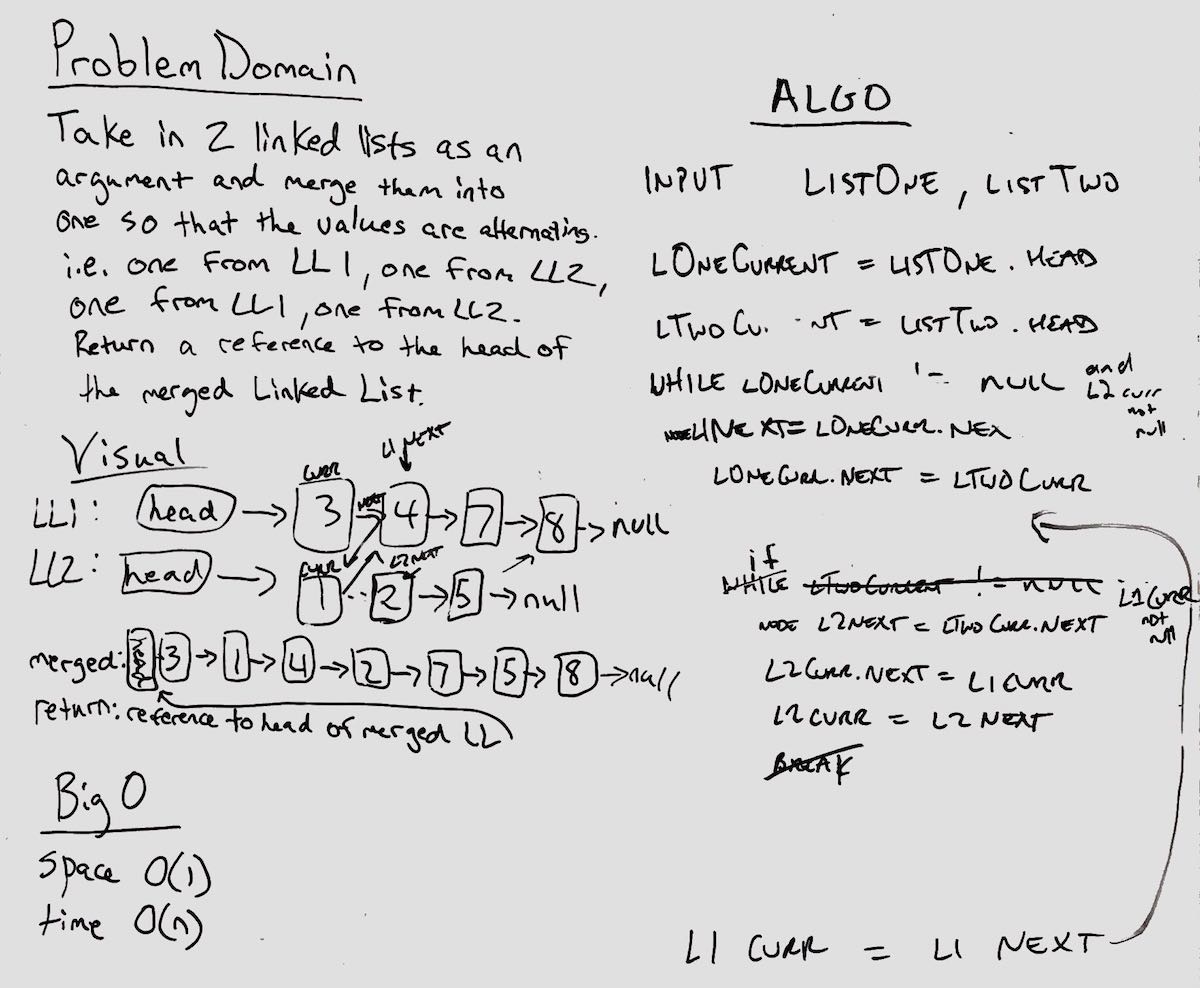 Problem Domain
Take in 2 linked lists as an
argument and merge them into
one so that the values are alternating.
i.e. one from LL1, one from LL2,
one from LL1, one from LL2.
Return a reference to the head of
the merged Linked List.
Visual
CURR
L1 NEXT
LL1: head → 3 NEXT → 4 → 7 → 8 → null
CURR
L2 NEXT
LL2: head → 1 2 → 5 → null
merged: 3 → 1 → 4 → 2 → 7 → 5 → 8 → null
return: reference to head of merged LL
Big O
Space O(1)
time O(n)
ALGO
INPUT LISTONE, LISTTWO
LONECURRENT = LISTONE.HEAD
LTWOCU. NT = LISTTWO.HEAD
WHILE LONECURRENT != NULL and
L2 curr
not
null
NODE L1NEXT = LONECURR.NEX
LONECURR.NEXT = LTWOCURR
if
WHILE LTWOCURRENT != NULL L1CURR
not
null
NODE L2NEXT = LTWOCURR.NEXT
L2CURR.NEXT = L1CURR
L2CURR = L2NEXT
BREAK
L1 CURR = L1 NEXT